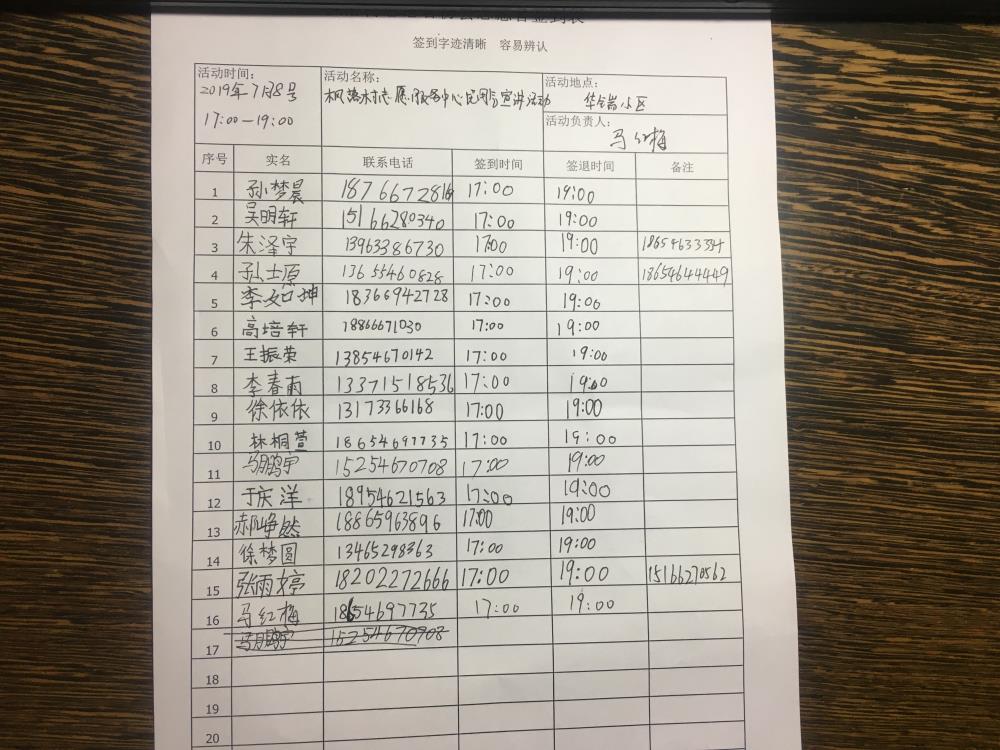 签到字迹清晰 容易辨认
活动时间： 活动名称： 活动地点：
2019年7月8号 志愿服务中心 宣讲活动 小区
17:00—19:00 活动负责人：
马红梅
序号 实名 联系电话 签到时间 签退时间 备注
1 孙梦晨 17:00 19:00
2 吴明轩 15166280340 17:00 19:00
3 朱泽宇 13963386730 17:00 19:00 18654633334
4 孙士原 13655460828 17:00 19:00 18654644449
5 李如坤 18366942728 17:00 19:00
6 高培轩 18866671030 17:00 19:00
7 王振荣 13854670142 17:00 19:00
8 李春雨 13371518536 17:00 19:00
9 徐依依 13173366168 17:00 19:00
10 林桐萱 18654697735 17:00 19:00
11 马鹏宇 15254670708 17:00 19:00
12 于庆洋 18954621563 17:00 19:00
13 郝峥然 18865963896 17:00 19:00
14 徐梦圆 13465298363 17:00 19:00
15 张雨婷 18202272666 17:00 19:00 15166270562
16 马红梅 18654697735 17:00 19:00
17 马鹏宇 15254670908
18
19
20